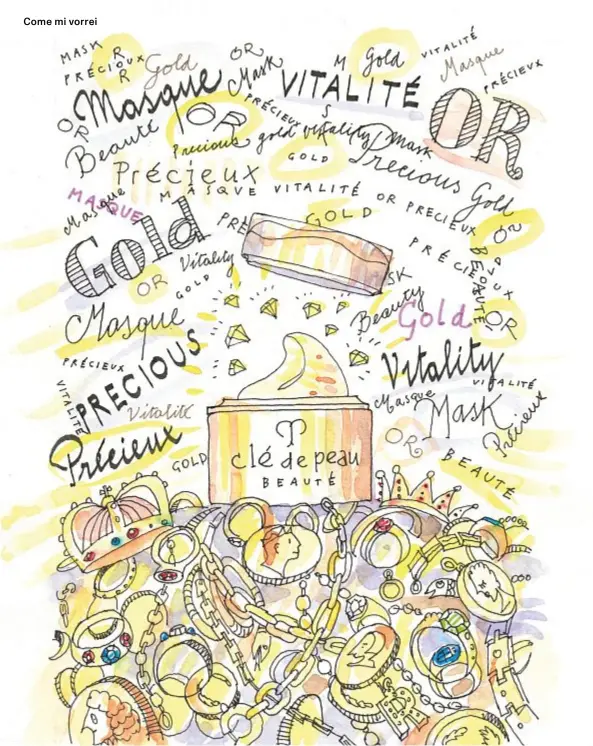 Come mi vorrei
MASK
PRÉCIOUX
R
R
Gold
OR
Mask
M
Gold
VITALITÉ
Masque
PRÉCIEUX
Masque
VITALITÉ
S
OR
OR
OR
PRÉCIEUX
MASK
Beauté
Precious gold vitality
Mask
GOLD
Precious Gold
Précieux
MASQUE VITALITÉ OR PRECIEUX
MASQUE
Masque
Gold
PRÉ
GOLD
OR
PRÉCIEUX
BEAUTÉ
BIJOUX
Vitality
GOLD
OR
SK
Beauty
Gold
OR
Masque
PRÉCIEUX
PRECIOUS
VITALITÉ
Vitalité
Vitality
VITALITÉ
Masque
Mask
Précieux
Précieux
GOLD
OR
BEAUTÉ
clé de peau
BEAUTÉ